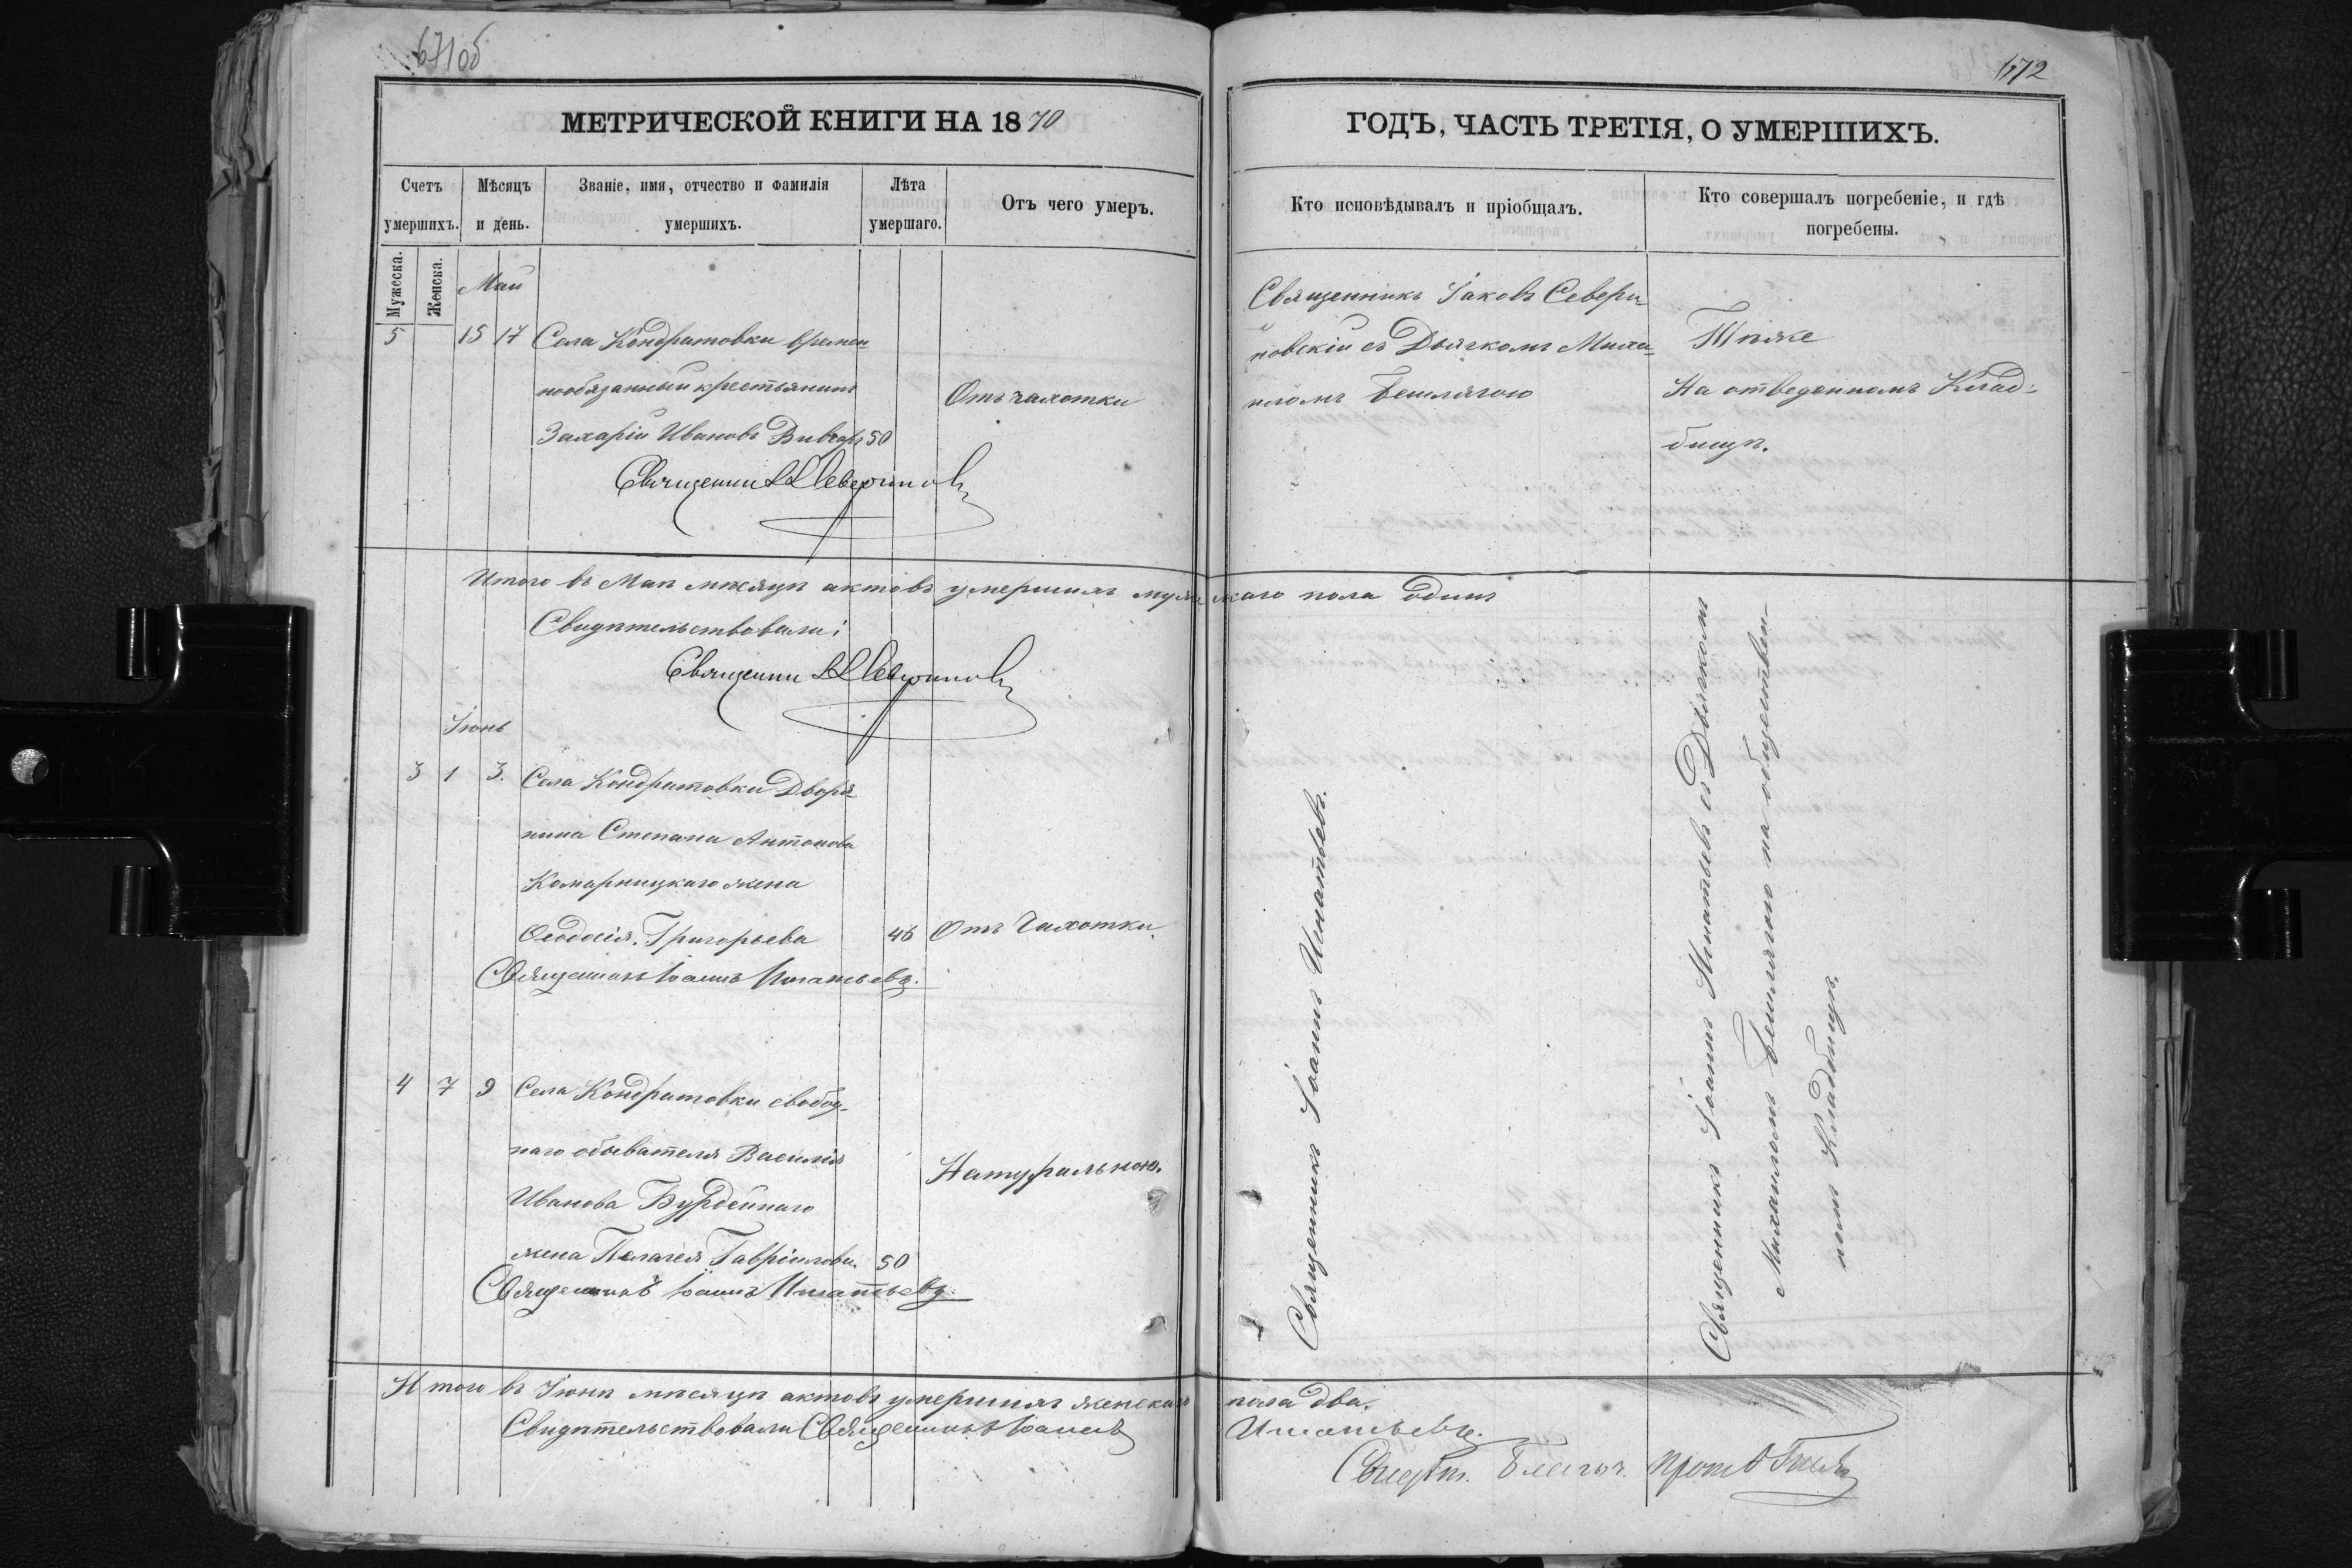 671об
МЕТРИЧЕСКОЙ КНИГИ НА 1870
Счетъ умершихъ.
Мѣсяцъ и день.
Званіе, имя, отчество и фамилія умершихъ.
Лѣта умершаго.
Отъ чего умеръ.
Мужеска.
Женска.
Май
5 15 17 Села Кондратовки времен-
нообязанный крестьянинъ
Отъ чахотки
Захарій Ивановъ 50
Священникъ
Итого въ Маѣ мѣсяцѣ актовъ умершихъ мужескаго пола одинъ
Свидѣтельствовали:
Священникъ
Іюнь
3 1 3. Села Кондратовки Дворя-
нина Степана Антонова
Комарницкаго жена
Ѳеодосія Григорьева 46 Отъ Чахотки.
Священникъ Іоаннъ Игнатьевъ.
4 7 9 Села Кондратовки свобод-
наго обывателя Василія
Натуральною.
Иванова Бурдейнаго
жена Пелагея Гавріилова. 50
Священникъ Іоаннъ Игнатьевъ.
Итого въ Іюнѣ мѣсяцѣ актовъ умершихъ женскаго пола два.
Свидѣтельствовали Священникъ Іоаннъ Игнатьевъ.
672
ГОДЪ, ЧАСТЬ ТРЕТІЯ, О УМЕРШИХЪ.
Кто исповѣдывалъ и пріобщалъ.
Кто совершалъ погребеніе, и гдѣ погребены.
Священникъ Іаковъ Севери-
новскій съ Дьячкомъ Миха-
иломъ Бешлягою
Тѣже
На отведенномъ Клад-
бищѣ.
Священникъ Іоаннъ Игнатьевъ.
Священникъ Іоаннъ Игнатьевъ съ Дьячкомъ
Михаиломъ Бешлягою на общественн-
номъ Кладбищѣ.
Свидѣт. Благоч.